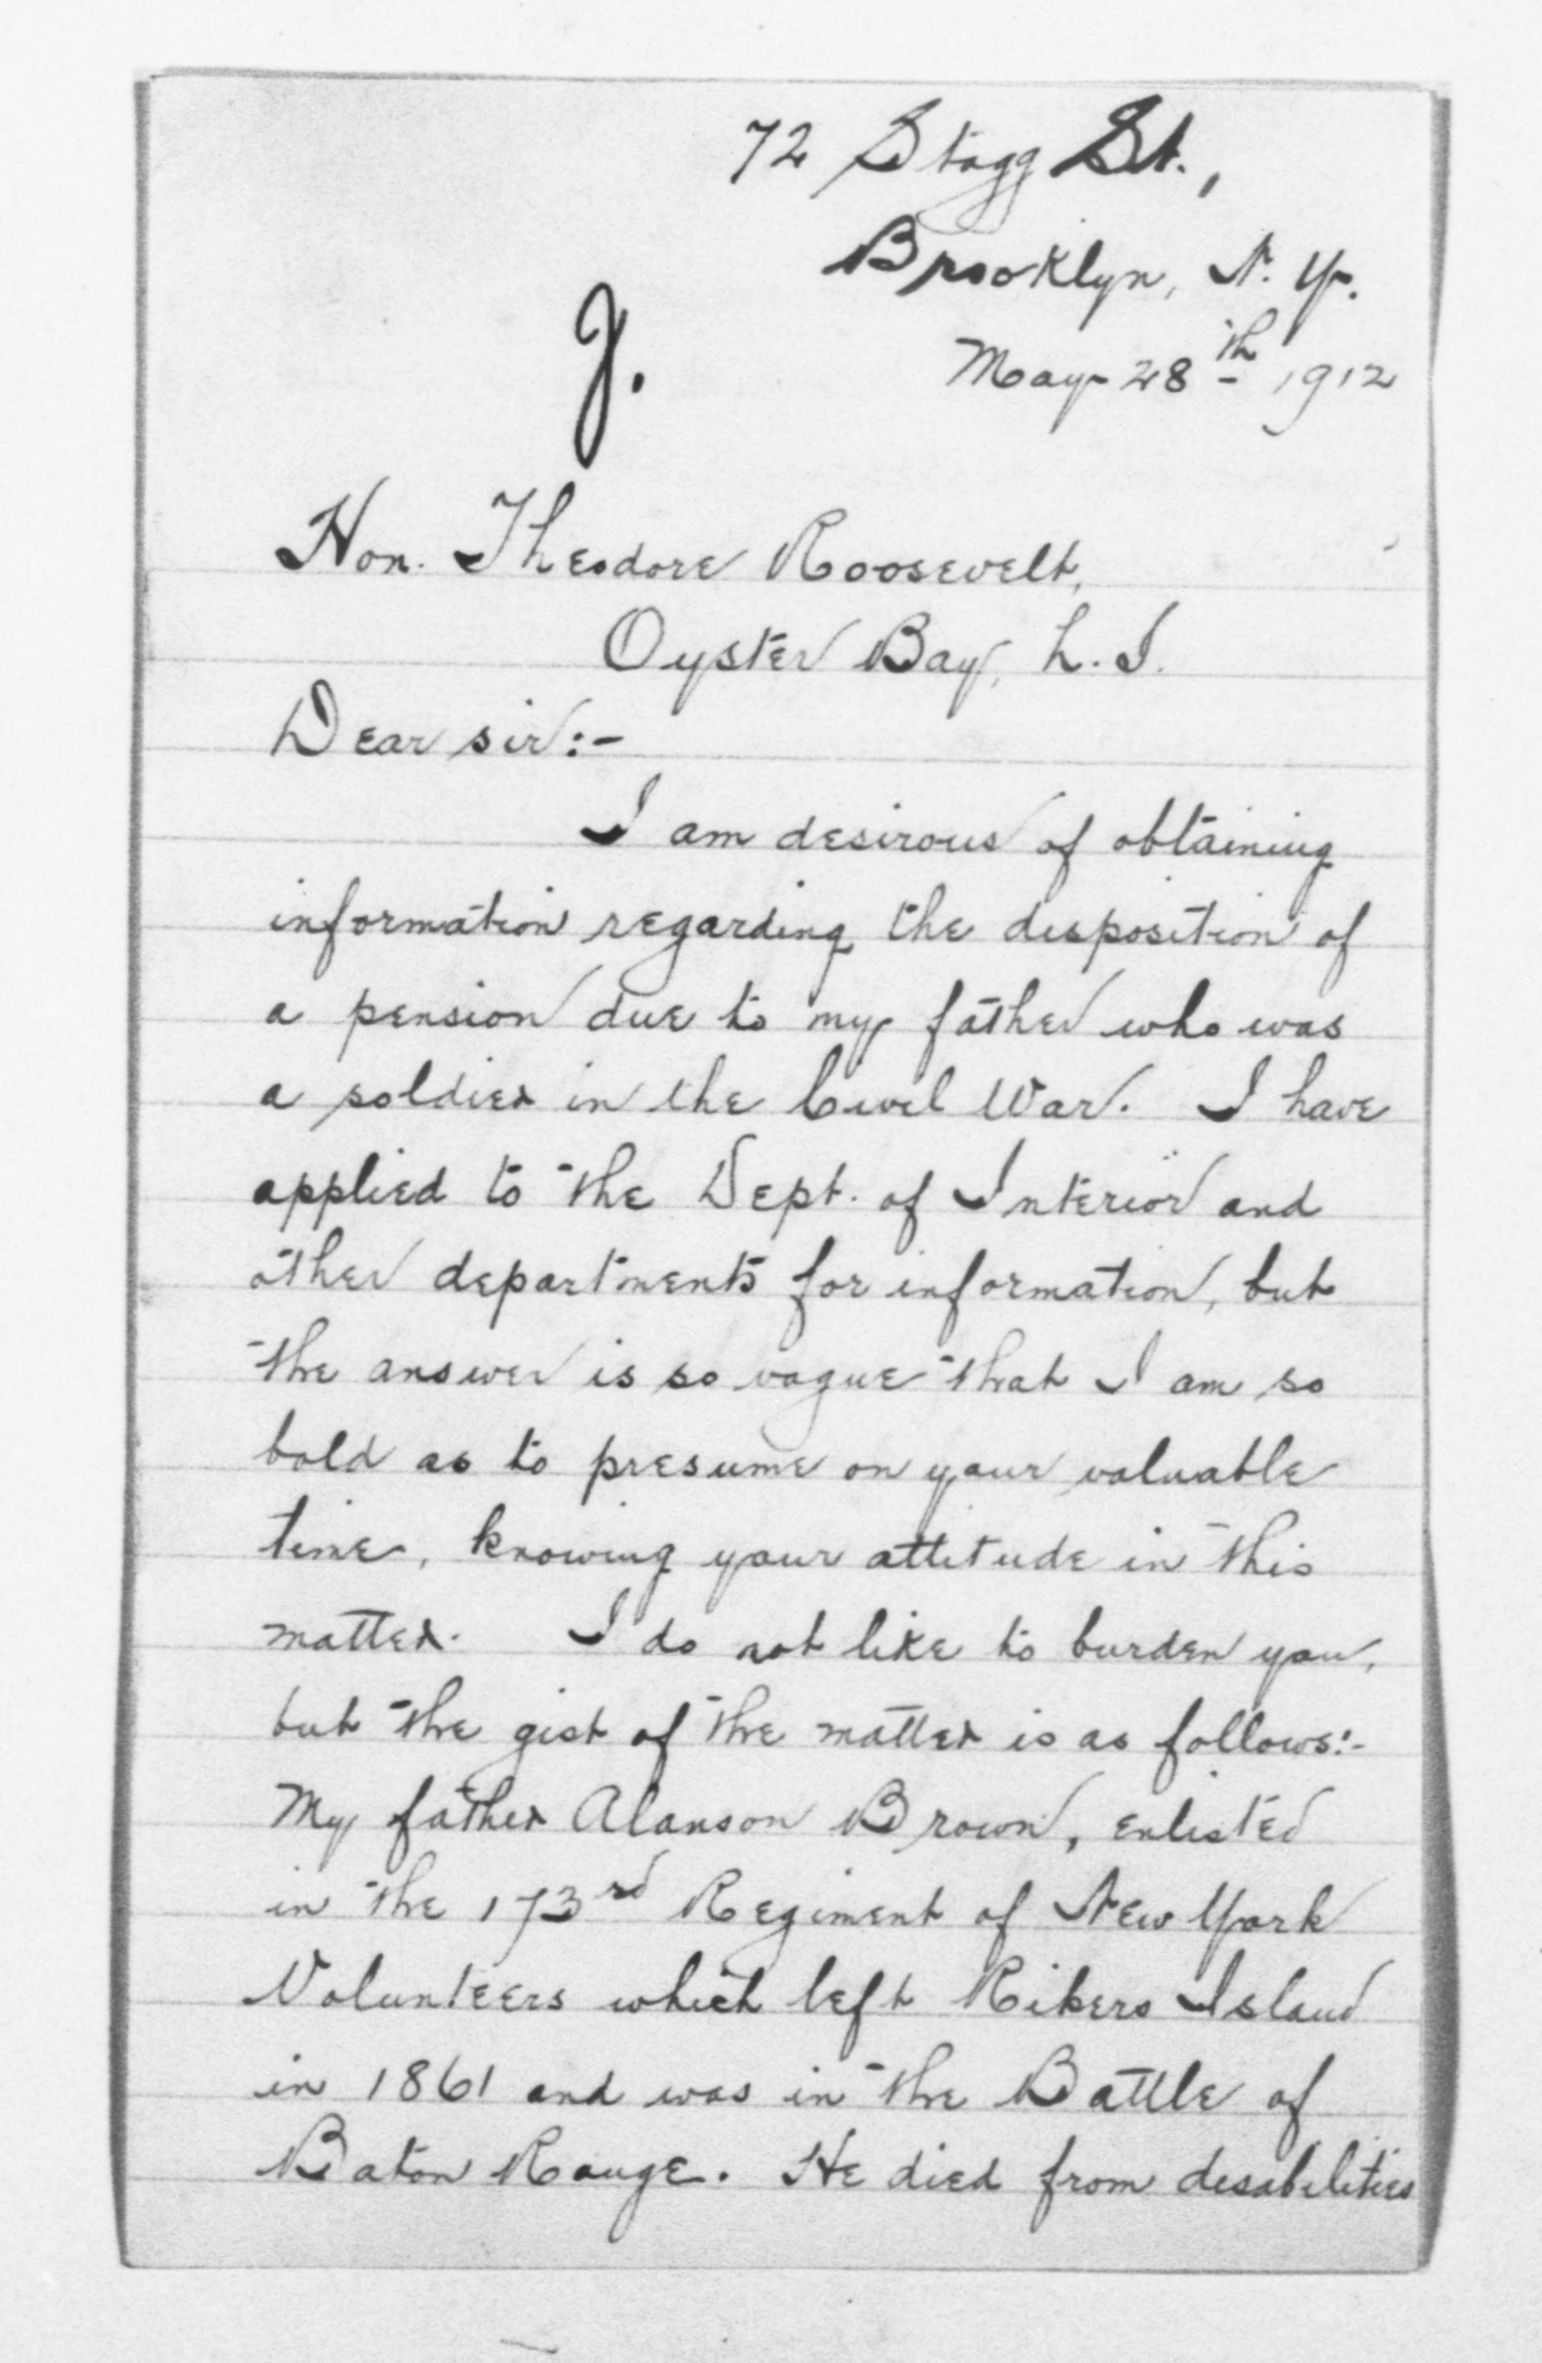 72 Stagg St.,
Brooklyn, N. Y.
J.
May 28th 1912
Hon. Theodore Roosevelt,
Oyster Bay, L. I.
Dear sir:-
I am desirous of obtaining
information regarding the disposition of
a pension due to my father who was
a soldier in the Civil War. I have
applied to the Dept. of Interior and
other departments for information, but
the answer is so vague that I am so
bold as to presume on your valuable
time, knowing your attitude in this
matter. I do not like to burden you,
but the gist of the matter is as follows:-
My father Alanson Brown, enlisted
in the 173rd Regiment of New York
Volunteers which left Rikers Island
in 1861 and was in the Battle of
Baton Rouge. He died from disabilities